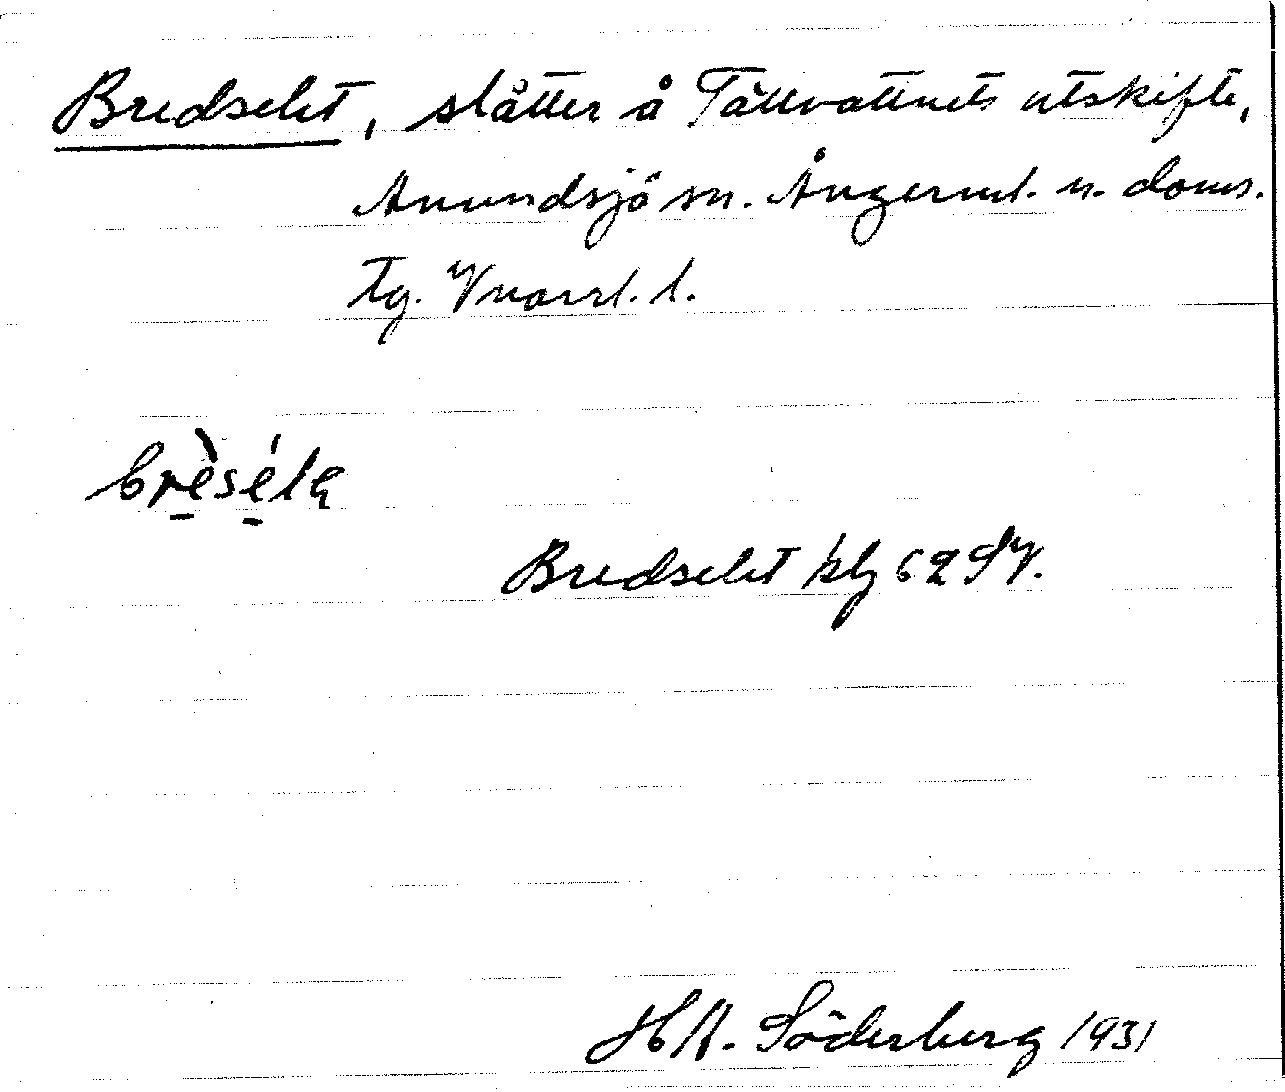 Bredselet, slåtter å Tällvattnets utskifte,
Anundsjö sn. Ångerml. n. doms.
tg. Vnorrl. l.
brèséla
Bredselet klg 62 SV.
H A. Söderberg 1931